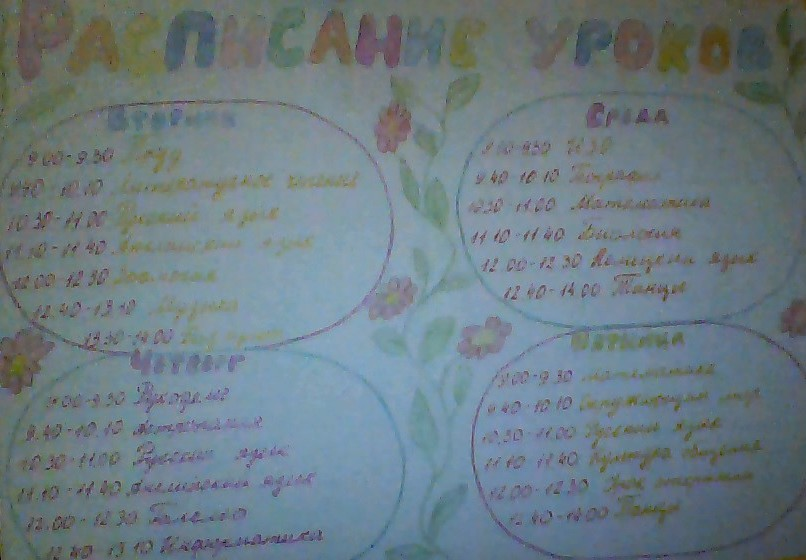 Расписание уроков
Вторник
9.00-9.30 Труд
9.40-10.10 Литературное чтение
10.30-11.00 Русский язык
11.10-11.40 Английский язык
12.00-12.30 Зоология
12.40-13.10 Музыка
13.30-14.00
Среда
9.00-9.30 ИЗО
9.40-10.10 География
10.30-11.00 Математика
11.10-11.40 Биология
12.00-12.30 Немецкий язык
12.40-14.00 Танцы
Четверг
9.00-9.30 Рукоделие
9.40-10.10
10.30-11.00 Русский язык
11.10-11.40 Английский язык
12.00-12.30
12.40-13.10 Информатика
Пятница
9.00-9.30 математика
9.40-10.10 Окружающий мир
10.30-11.00 Русский язык
11.10-11.40 Культура общения
12.00-12.30 Урок
12.40-14.00 Танцы